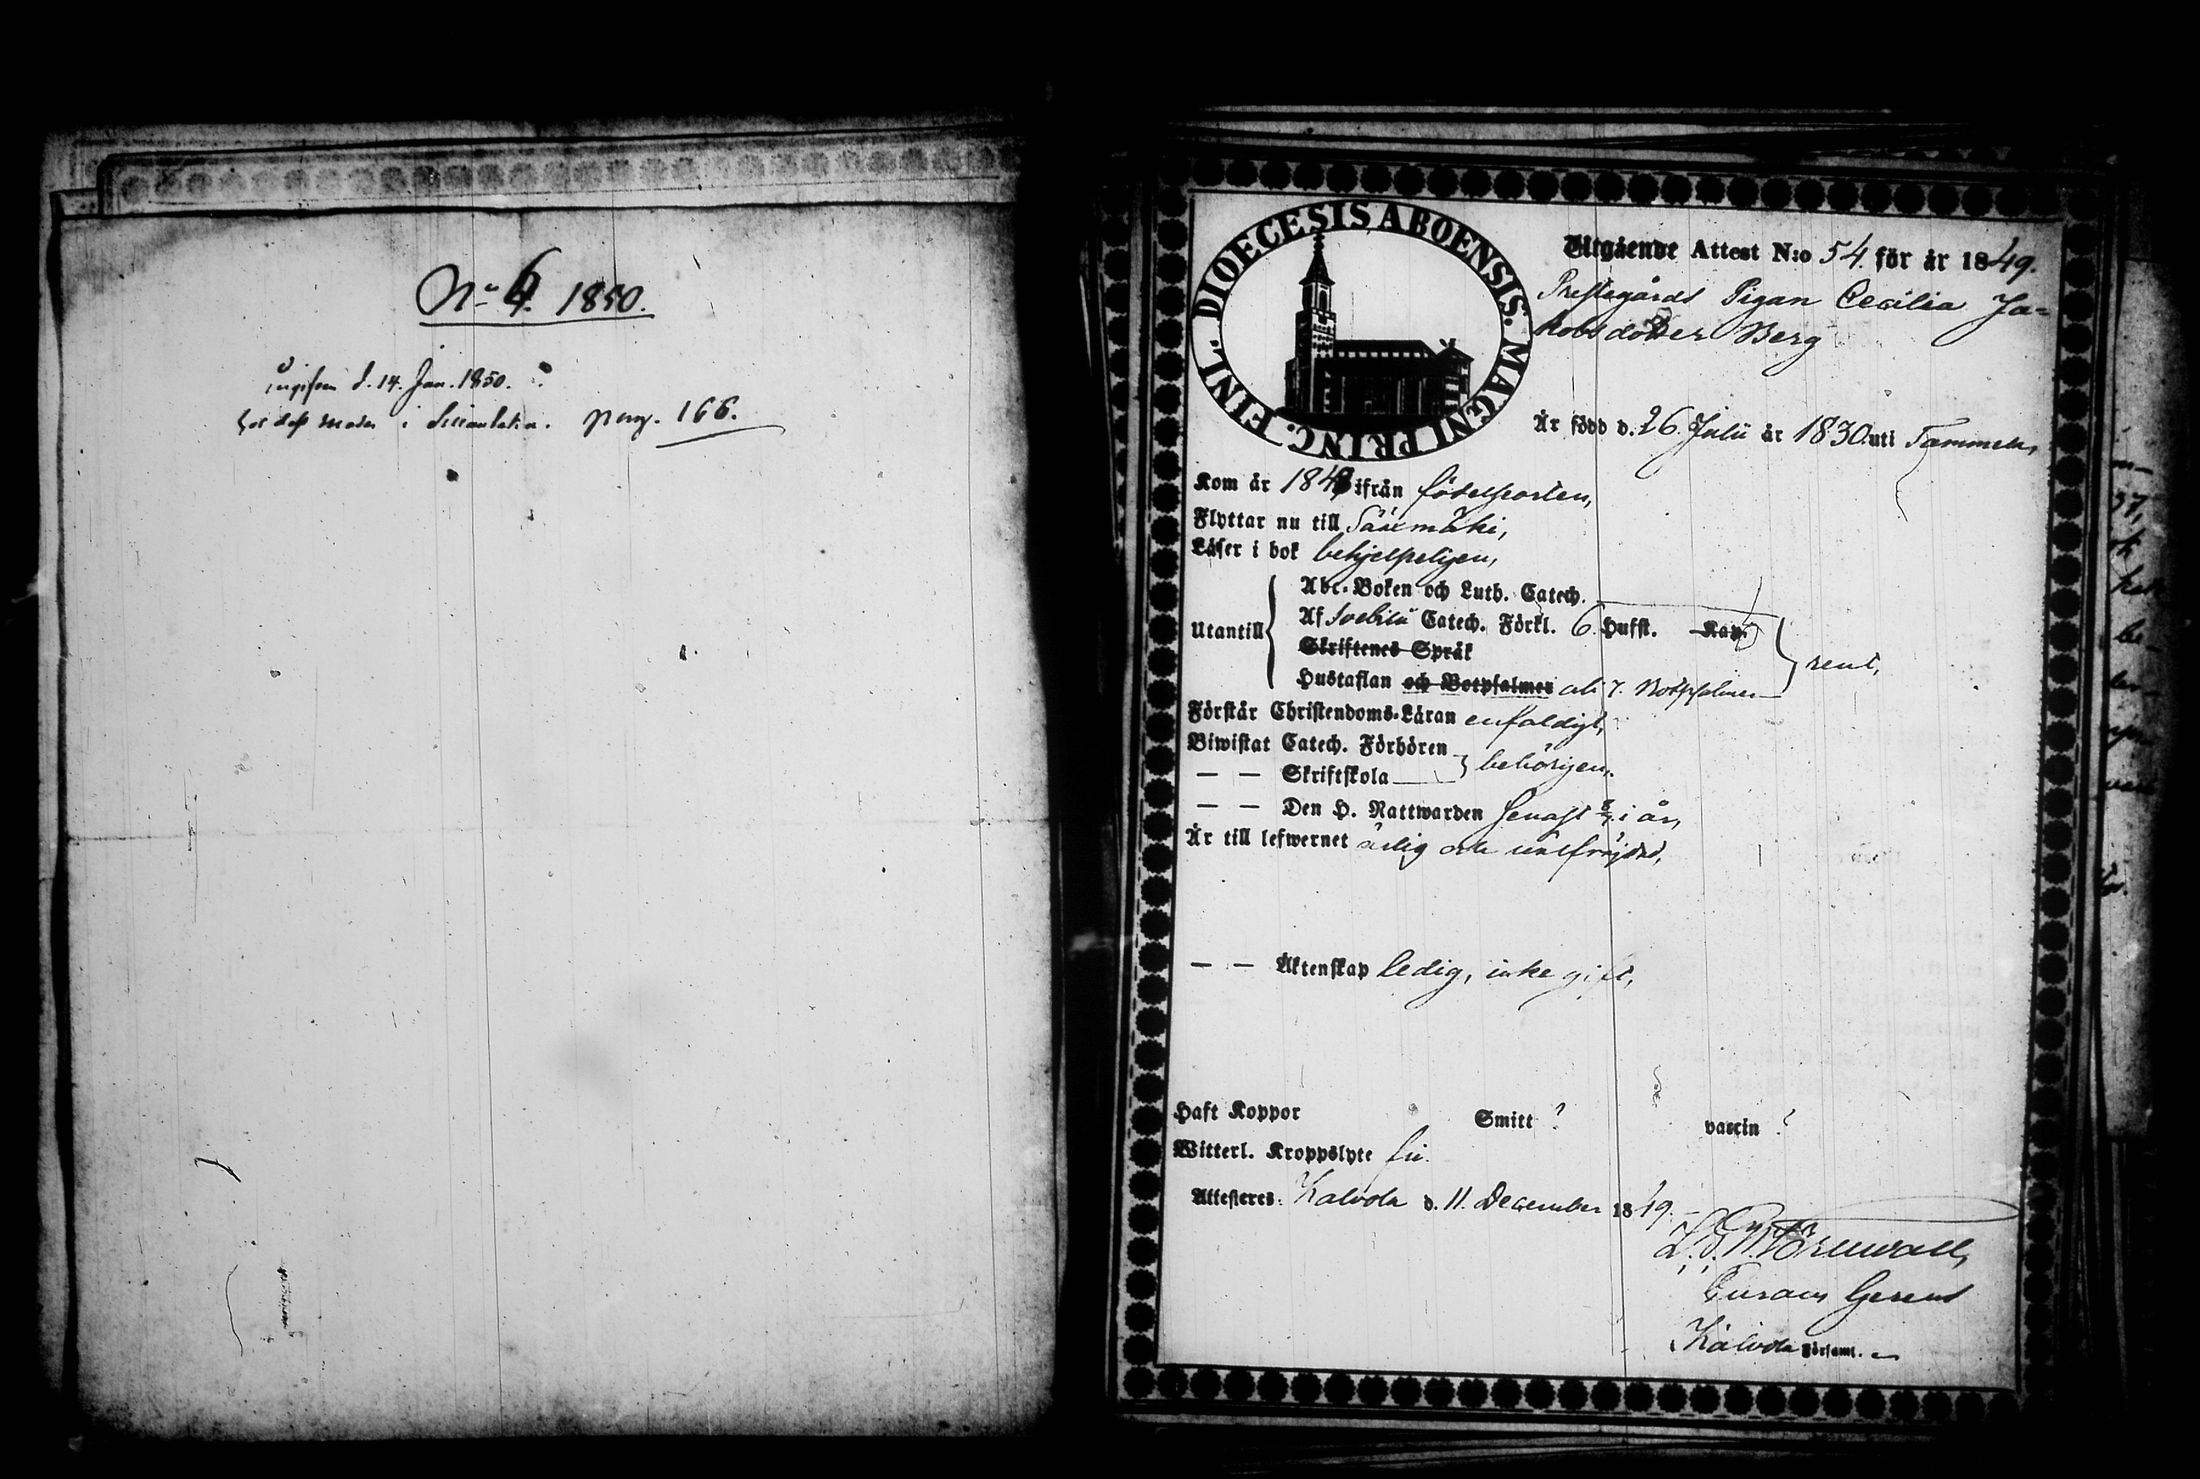 No 6. 1850.
ingifven d. 14. Jan. 1850.
hos dess moder i pag. 166.
DIOECESIS ABOENSIS. MAGNI PRINC. FINL.
Utgående Attest N:o 54. för år 1849.
Prestegårds Pigan Cecilia Ja=
kobsdotter Berg
Är född d. 26 Julii år 1830 uti Tammela,
Kom år 1848 ifrån födelseorten,
Flyttar nu till Sääxmäki,
Läser i bok behjelpeligen,
Abc-Boken och Luth. Catech.
Utantill Af Svebilii Catech. Förkl. 6 Hufst. Kap.
Skriftenes Språk
Hustaflan och Botpsalmer och 7. Botpsalmer rent,
Förstår Christendoms-Läran enfaldigt,
Biwistat Catech. Förhören
— — Skriftskola behörigen.
— — Den H. Nattwarden senast i år,
Är till lefwernet ärlig och välfrejdad,
— — Äktenskap ledig, icke gift,
Haft Koppor Smitt ? vaccin ?
Witterl. Kroppslyte fri.
Attesteras: Kalvola d. 11. December 1849.
Curam Gerens
Kalvola Församl.